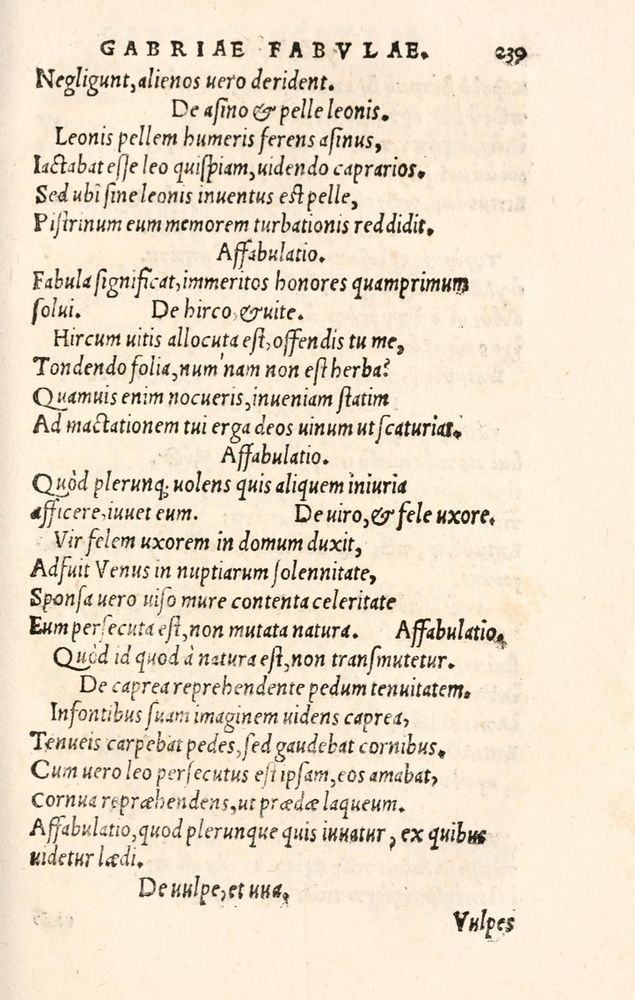 GABRIAE FABVLAE. 239
Negligunt, alienos uero derident.
De asino & pelle leonis.
Leonis pellem humeris ferens asinus,
Iactabat esse leo quispiam, uidendo caprarios.
Sed ubi sine leonis inuentus est pelle,
Pistrinum eum memorem turbationis reddidit.
Affabulatio.
Fabula significat, immeritos honores quamprimum
solui. De hirco, & uite.
Hircum uitis allocuta est, offendis tu me,
Tondendo folia, num nam non est herba?
Quamuis enim nocueris, inueniam statim
Ad mactationem tui erga deos uinum ut scaturiat.
Affabulatio.
Quòd plerunq; uolens quis aliquem iniuria
afficere, iuuet eum. De uiro, & fele uxore.
Vir felem uxorem in domum duxit,
Adfuit Venus in nuptiarum solennitate,
Sponsa uero uiso mure contenta celeritate
Eum persecuta est, non mutata natura. Affabulatio.
Quòd id quod à natura est, non transmutetur.
De caprea reprehendente pedum tenuitatem.
In fontibus suam imaginem uidens caprea,
Tenueis carpebat pedes, sed gaudebat cornibus.
Cum uero leo persecutus est ipsam, eos amabat,
Cornua repræhendens, ut prædæ laqueum.
Affabulatio, quod plerunque quis iuuatur, ex quibus
uidetur lædi.
De uulpe, et uua.
Vulpes